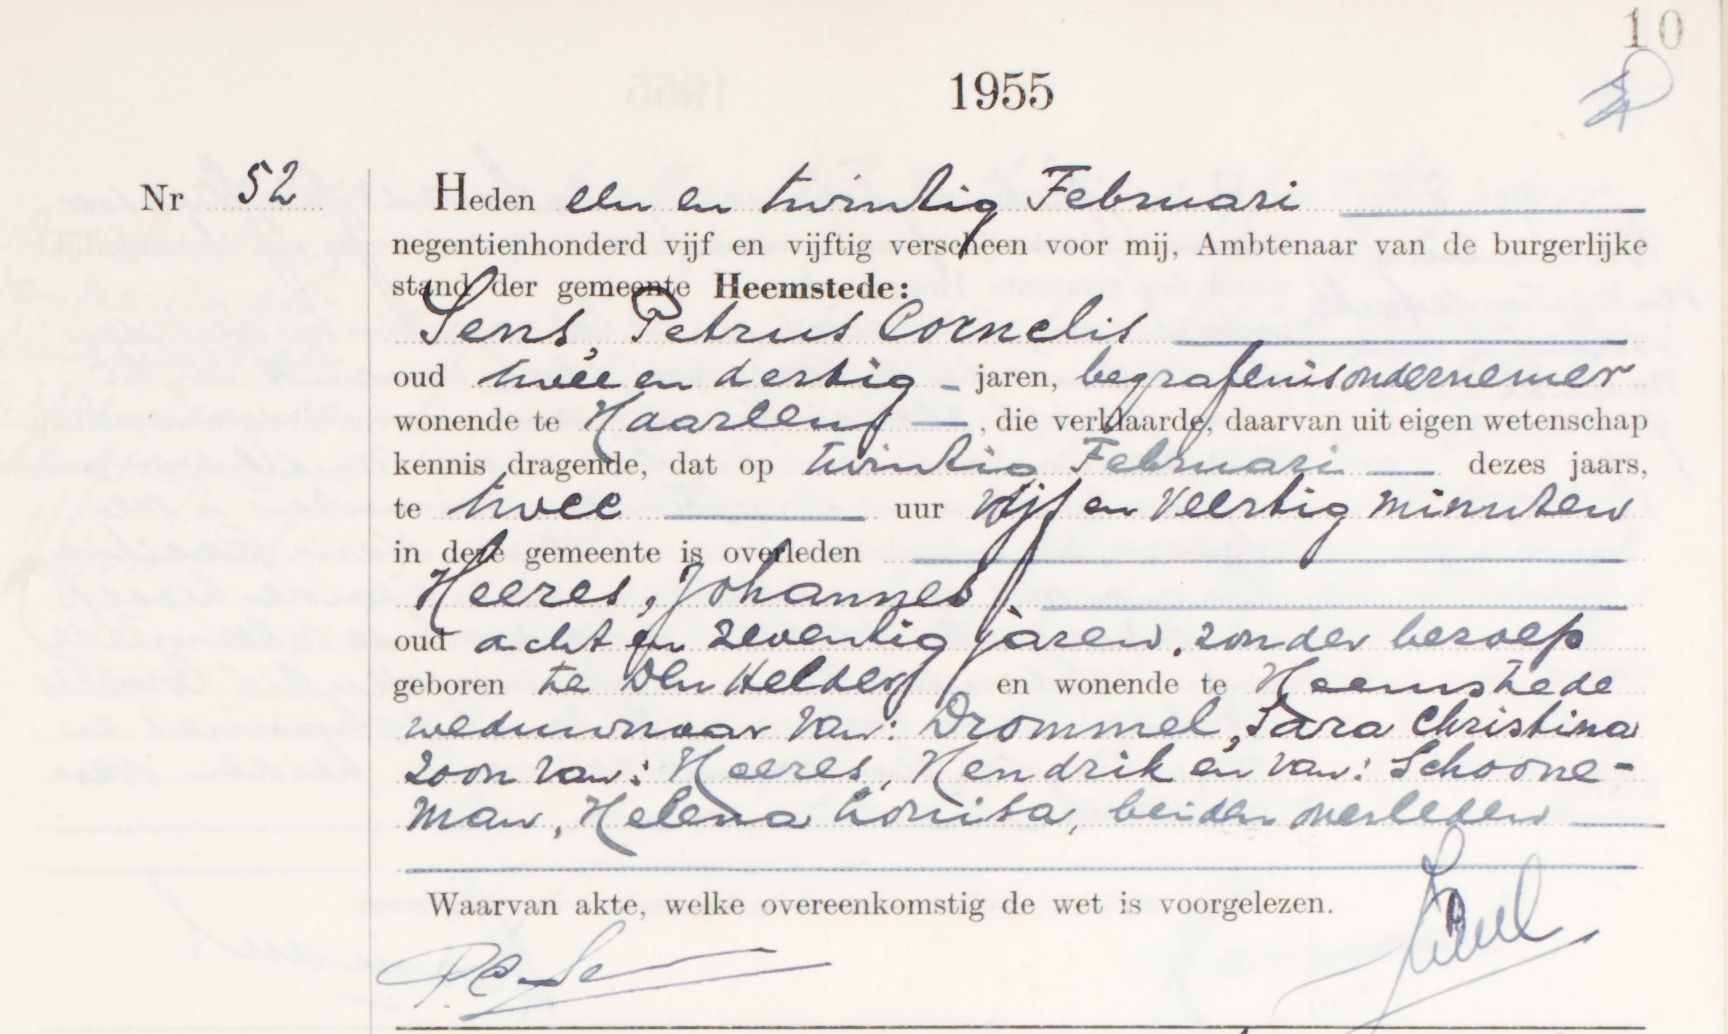 10
1955
Nr 52
Heden een en twintig Februari
negentienhonderd vijf en vijftig verscheen voor mij, Ambtenaar van de burgerlijke
stand der gemeente Heemstede:
Sens, Petrus Cornelis
oud twee en dertig - jaren, begrafenisondernemer
wonende te Haarlem —, die verklaarde, daarvan uit eigen wetenschap
kennis dragende, dat op twintig Februari — dezes jaars,
te twee — uur vijf en veertig minuten
in deze gemeente is overleden
Heeres, Johannes
oud acht en zeventig jaren, zonder beroep
geboren te Den Helder en wonende te Heemstede
weduwnaar van: Drommel, Sara Christina
zoon van: Heeres, Hendrik en van: Schoone-
man, Helena Louisa, beiden overleden
Waarvan akte, welke overeenkomstig de wet is voorgelezen.